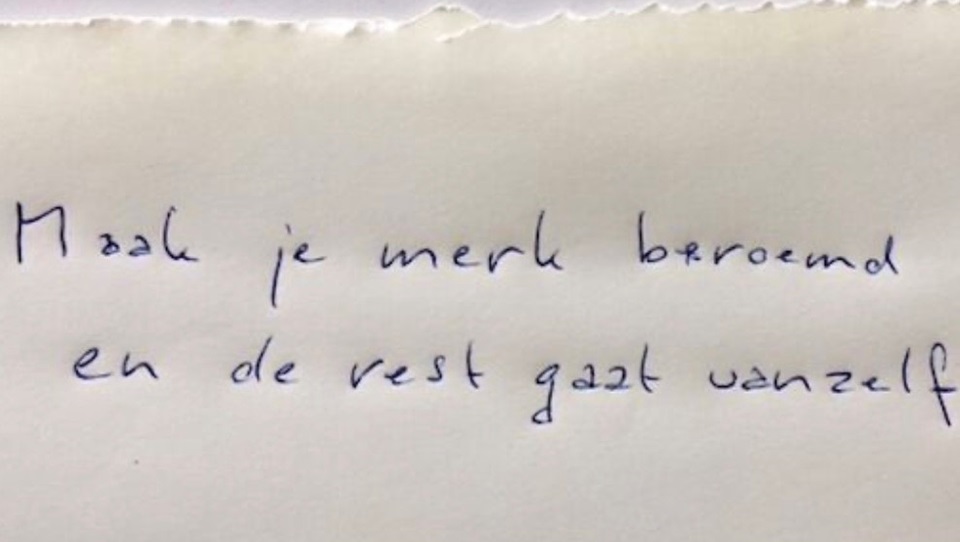 Maak je merk beroemd
en de rest gaat vanzelf